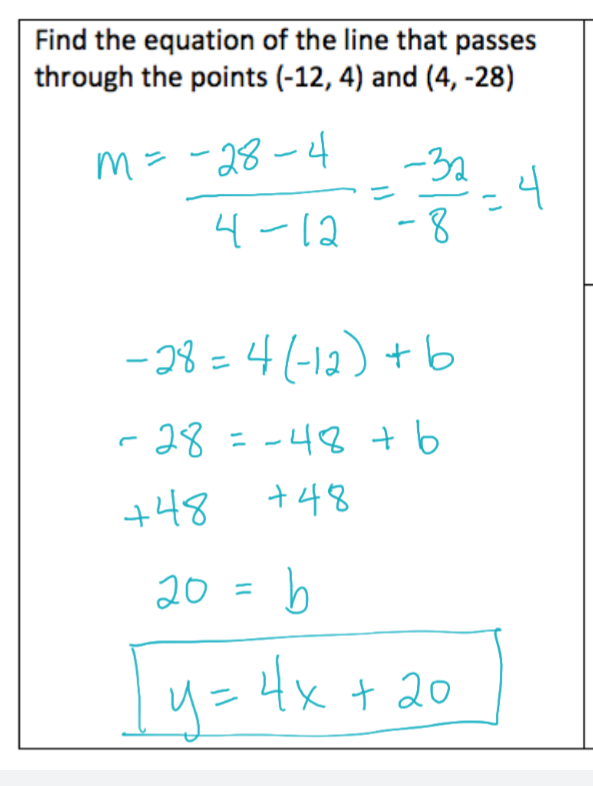 Find the equation of the line that passes
through the points (-12, 4) and (4, -28)
m = -28 - 4 / 4 - 12 = -32 / -8 = 4
-28 = 4(-12) + b
-28 = -48 + b
+48 +48
20 = b
y = 4x + 20